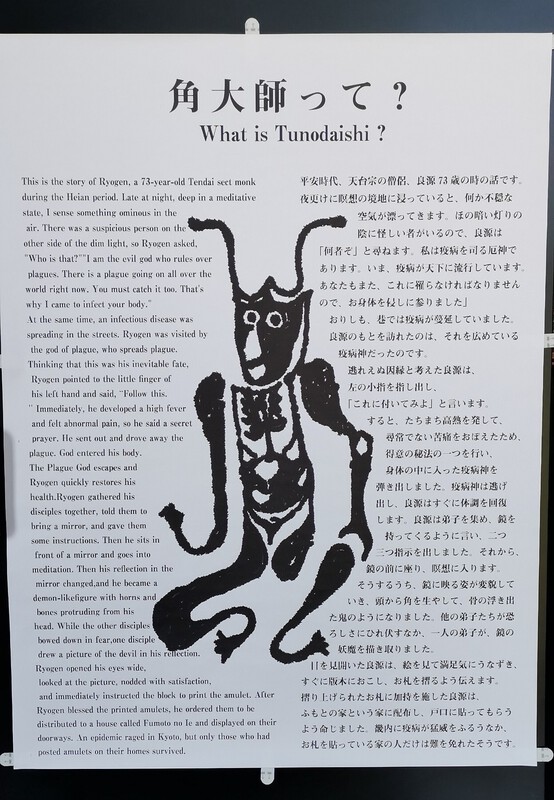 角大師って？
What is Tunodaishi ?
This is the story of Ryogen, a 73-year-old Tendai sect monk
during the Heian period. Late at night, deep in a meditative
state, I sense something ominous in the
air. There was a suspicious person on the
other side of the dim light, so Ryogen asked,
"Who is that?""I am the evil god who rules over
plagues. There is a plague going on all over the
world right now. You must catch it too. That's
why I came to infect your body."
At the same time, an infectious disease was
spreading in the streets. Ryogen was visited by
the god of plague, who spreads plague.
Thinking that this was his inevitable fate,
Ryogen pointed to the little finger of
his left hand and said, "Follow this.
" Immediately, he developed a high fever
and felt abnormal pain, so he said a secret
prayer. He sent out and drove away the
plague. God entered his body.
The Plague God escapes and
Ryogen quickly restores his
health.Ryogen gathered his
disciples together, told them to
bring a mirror, and gave them
some instructions. Then he sits in
front of a mirror and goes into
meditation. Then his reflection in the
mirror changed,and he became a
demon-likefigure with horns and
bones protruding from his
head. While the other disciples
bowed down in fear,one disciple
drew a picture of the devil in his reflection.
Ryogen opened his eyes wide,
looked at the picture, nodded with satisfaction,
and immediately instructed the block to print the amulet. After
Ryogen blessed the printed amulets, he ordered them to be
distributed to a house called Fumoto no Ie and displayed on their
doorways. An epidemic raged in Kyoto, but only those who had
posted amulets on their homes survived.
平安時代、天台宗の僧侶、良源 73 歳の時の話です。
夜更けに瞑想の境地に浸っていると、何か不穏な
空気が漂ってきます。ほの暗い灯りの
陰に怪しい者がいるので、良源は
「何者ぞ」と尋ねます。私は疫病を司る厄神で
あります。いま、疫病が天下に流行しています。
あなたもまた、これに罹らなければなりません
ので、お身体を侵しに参りました」
おりしも、巷では疫病が蔓延していました。
良源のもとを訪れたのは、それを広めている
疫病神だったのです。
逃れえぬ因縁と考えた良源は、
左の小指を指し出し、
「これに付いてみよ」と言います。
すると、たちまち高熱を発して、
尋常でない苦痛をおぼえたため、
得意の秘法の一つを行い、
身体の中に入った疫病神を
弾き出しました。疫病神は逃げ
出し、良源はすぐに体調を回復
します。良源は弟子を集め、鏡を
持ってくるように言い、二つ
三つ指示を出しました。それから、
鏡の前に座り、瞑想に入ります。
そうするうち、鏡に映る姿が変貌して
いき、頭から角を生やして、骨の浮き出
た鬼のようになりました。他の弟子たちが恐
ろしさにひれ伏すなか、一人の弟子が、鏡の
妖魔を描き取りました。
目を見開いた良源は、絵を見て満足気にうなずき、
すぐに版木におこし、お札を摺るよう伝えます。
摺り上げられたお札に加持を施した良源は、
ふもとの家という家に配布し、戸口に貼ってもらう
よう命じました。畿内に疫病が猛威をふるうなか、
お札を貼っている家の人だけは難を免れたそうです。